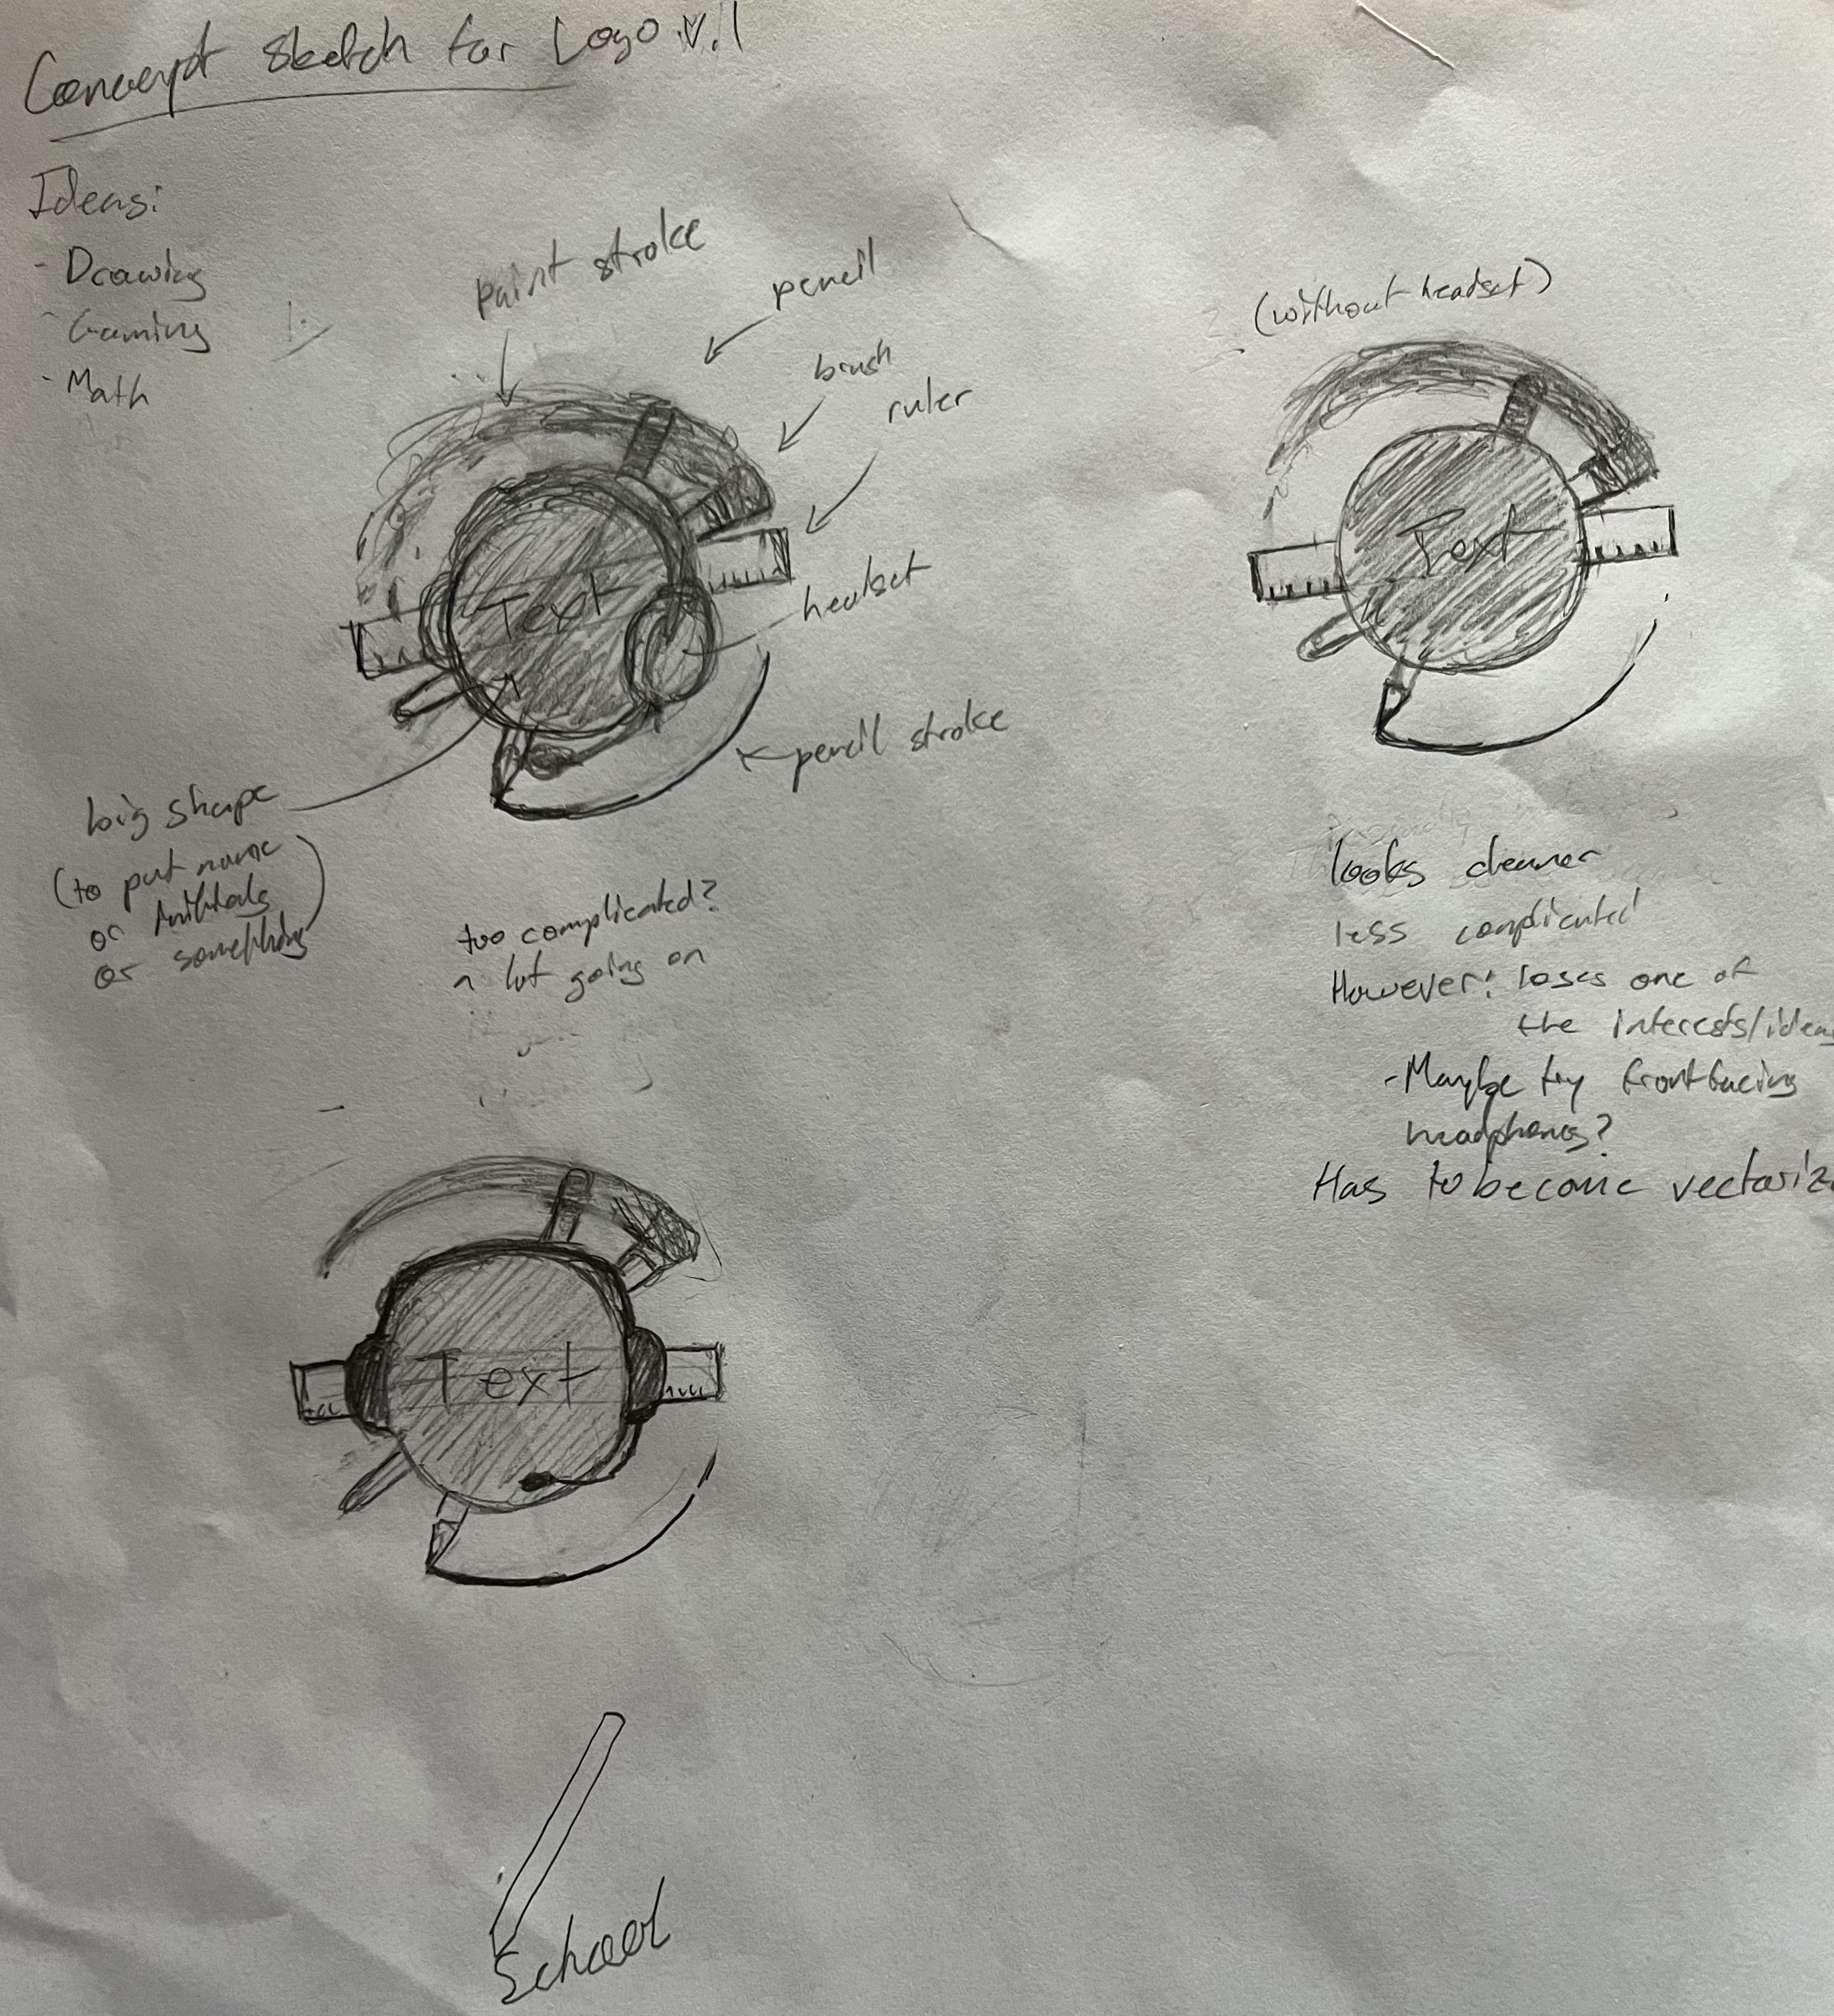 Concept sketch for Logo v.1
Ideas:
- Drawing
- Gaming
- Math
1.
paint stroke
pencil
brush
ruler
headset
pencil stroke
Text
big shape
(to put name
or initials
or something)
too complicated?
a lot going on
2. (without headset)
Text
looks cleaner
less complicated
However: loses one of
the interests/ideas
- Maybe try front facing
headphones?
Has to become vectoriz
Text
School